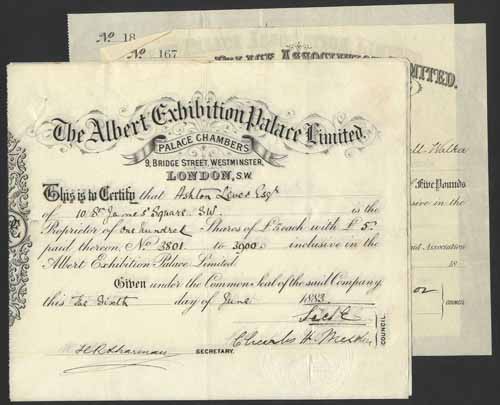 No 18
No 167
PALACE ASSOCIATION LIMITED.
The Albert Exhibition Palace Limited.
PALACE CHAMBERS
9, BRIDGE STREET, WESTMINSTER,
LONDON, S.W.
This is to Certify that Ashton Lever Esqr
of 10 St James' Square S.W. is the
Proprietor of One hundred Shares of £5 each with £5
paid thereon, No 3801 to 3900 inclusive in the
Albert Exhibition Palace Limited.
Given under the Common Seal of the said Company
this the Sixth day of June 1883
COUNCIL
SECRETARY.
Walker
Five Pounds
inclusive in the
said Association
18
COUNCIL